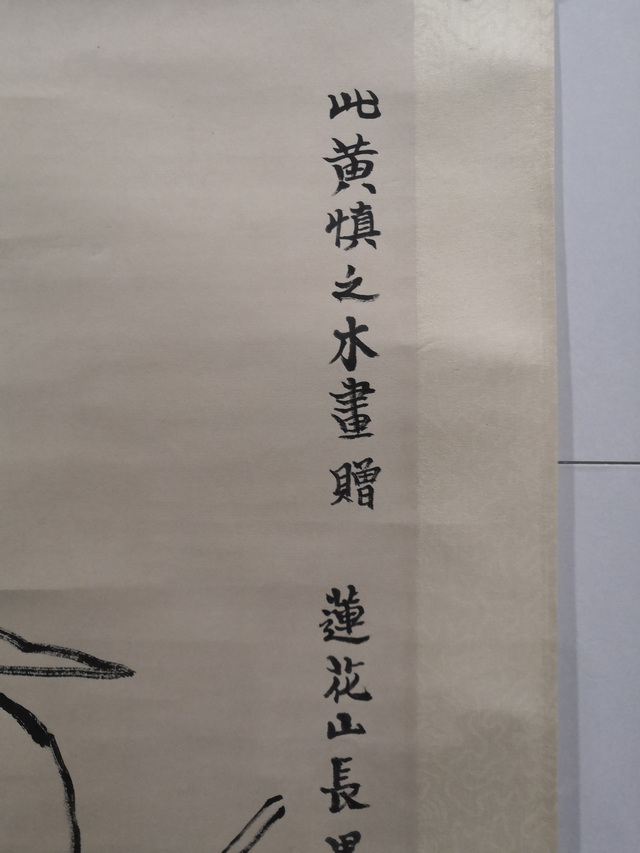 此黄慎之水畫贈 蓮花山長